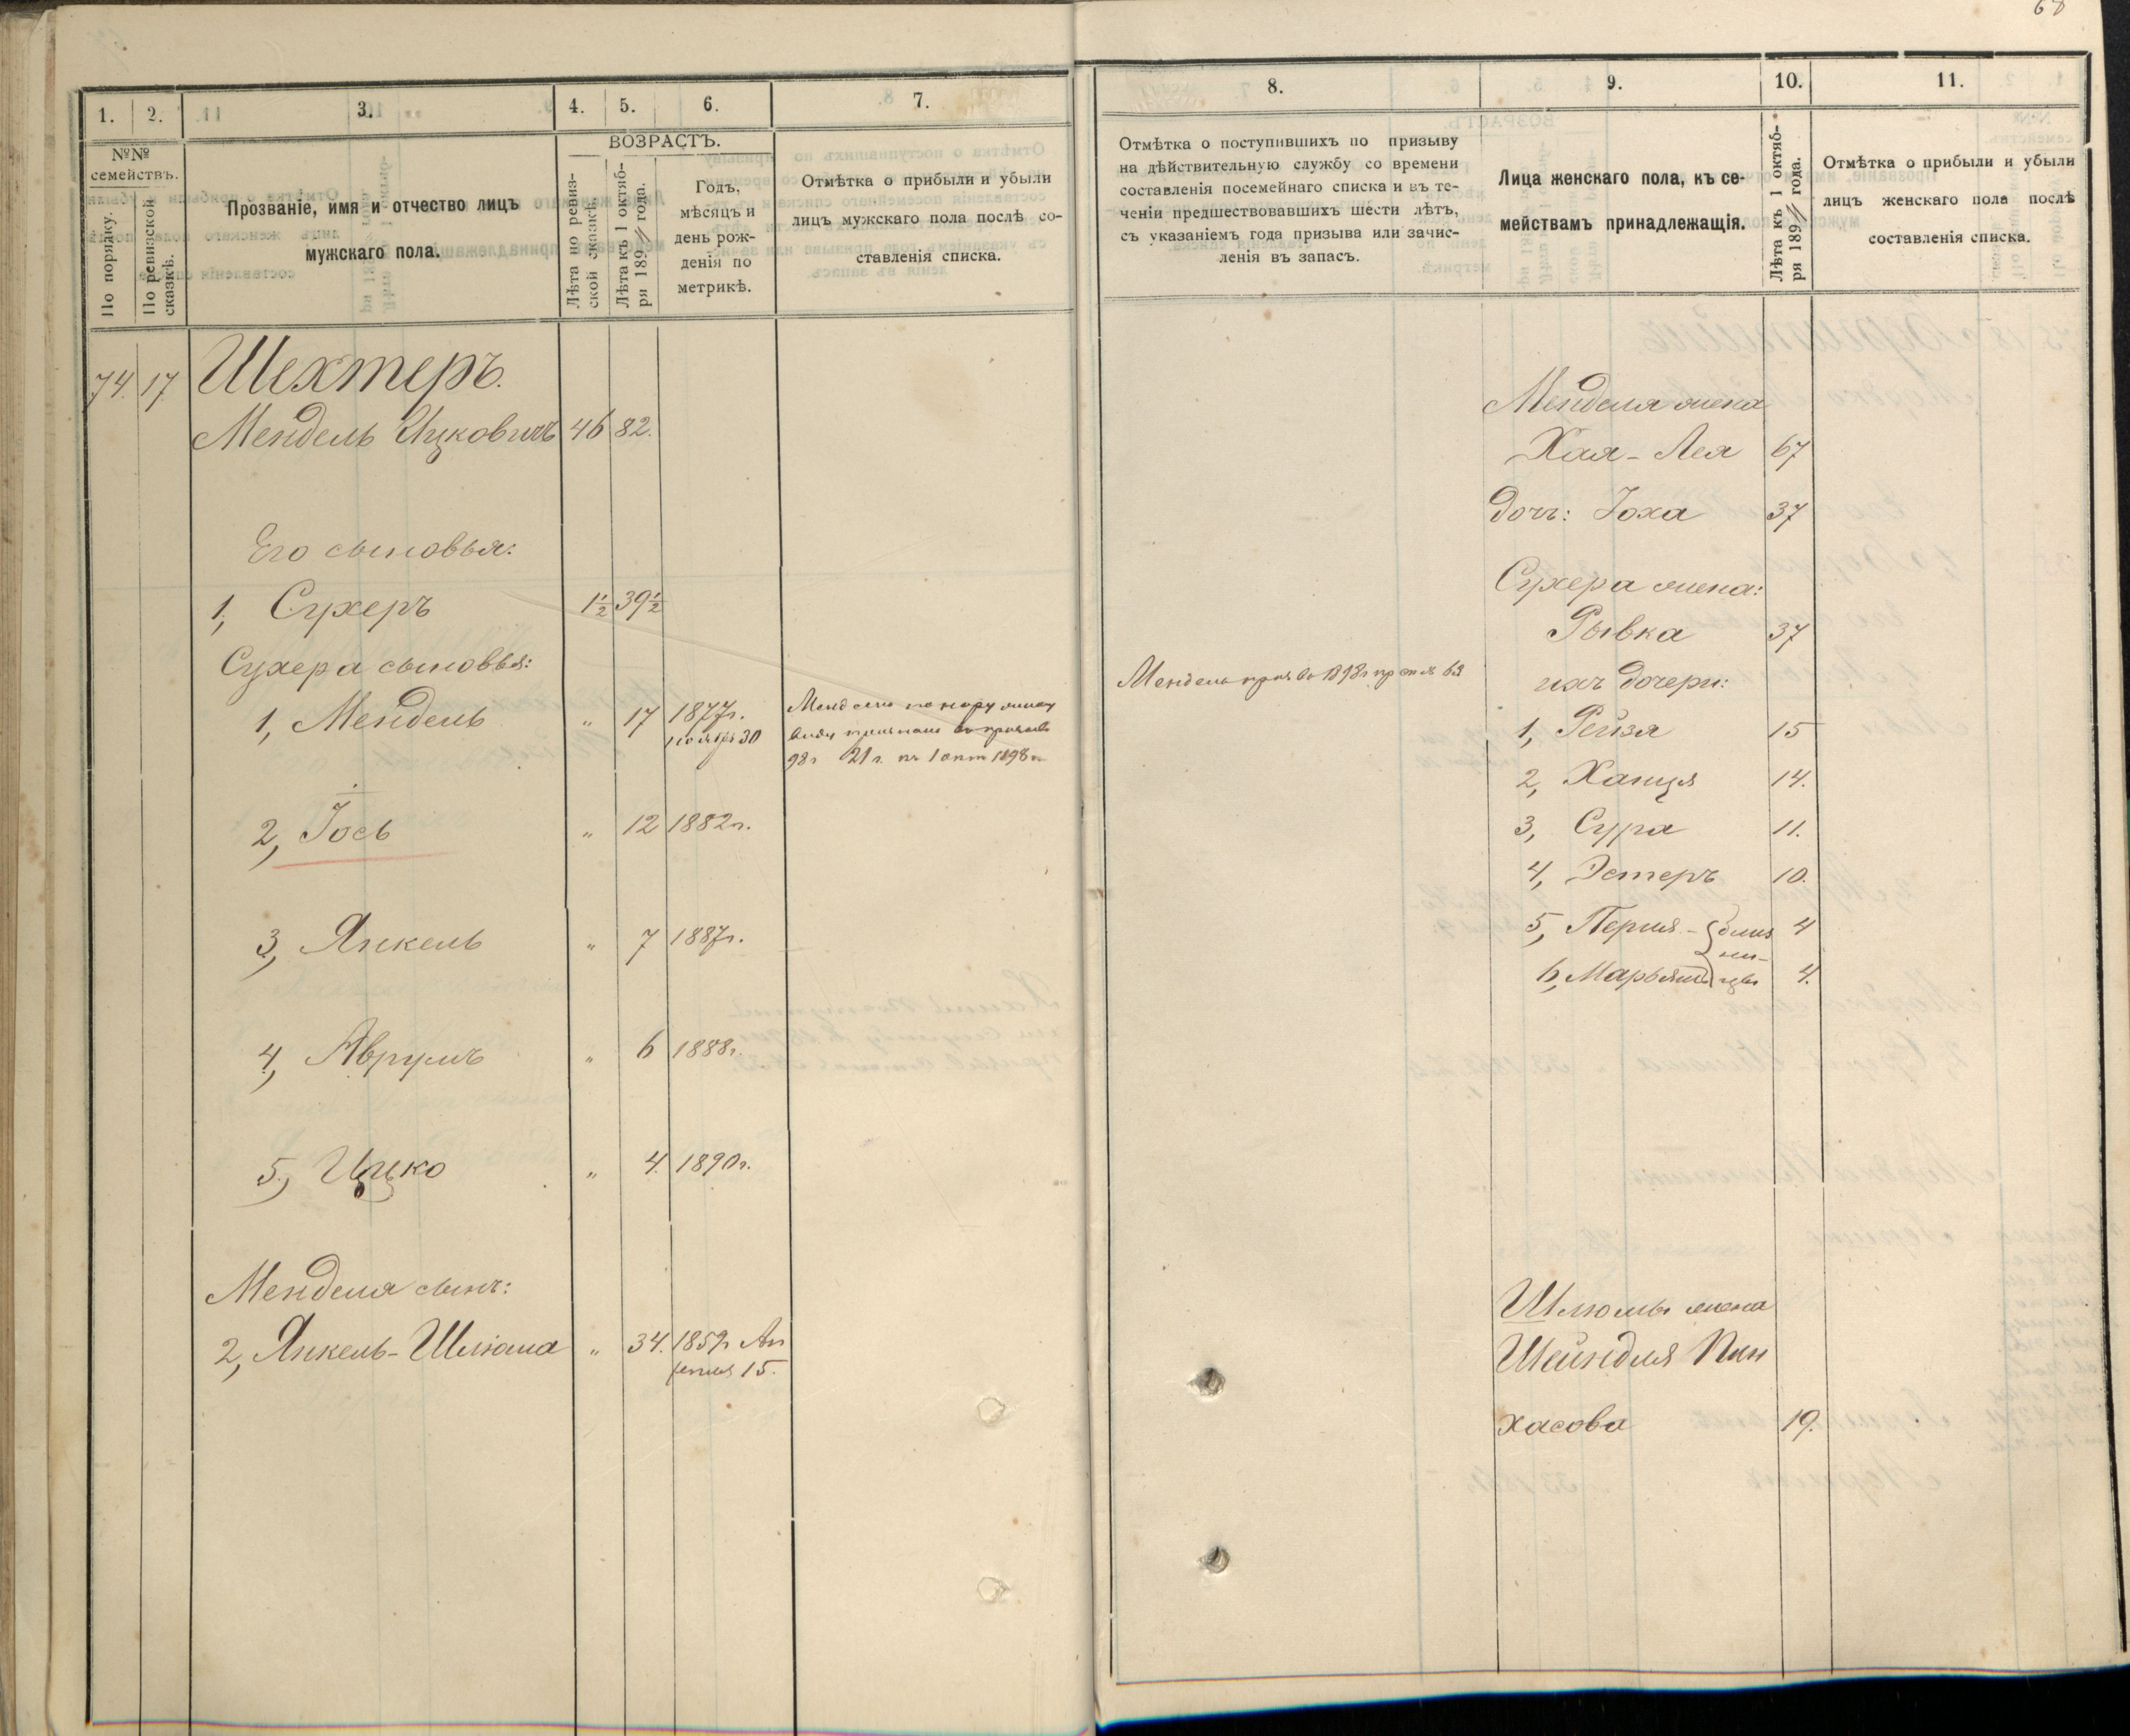 68
1. 2. 3. 4. 5. 6. 7.
№№ семействъ.
По порядку.
По ревизской сказкѣ.
Прозваніе, имя и отчество лицъ
мужскаго пола.
ВОЗРАСТЪ.
Лѣта по ревиз-
ской сказкѣ.
Лѣта къ 1 октяб-
ря 1894 года.
Годъ,
мѣсяцъ и
день рож-
денія по
метрикѣ.
Отмѣтка о прибыли и убыли
лицъ мужскаго пола послѣ со-
ставленія списка.
74. 17 Шехтеръ.
Мендель Ицковичъ 46 82.
Его сыновья:
1, Сухеръ 1½ 39½
Сухера сыновья:
1, Мендель " 17 1877г.
ноября 30
98г 21 г. къ 1 окт 1898 г
2, Іось " 12 1882г.
3, Янкель " 7 1887г.
4, Аврумъ " 6 1888г.
5, Ицко " 4. 1890г.
Менделя сынъ:
2, Янкель-Шлюма " 34. 1859г Ап
реля 15.
8. 9. 10. 11.
Отмѣтка о поступившихъ по призыву
на дѣйствительную службу со времени
составленія посемейнаго списка и въ те-
ченіи предшествовавшихъ шести лѣтъ,
съ указаніемъ года призыва или зачис-
ленія въ запасъ.
Лица женскаго пола, къ се-
мействамъ принадлежащія.
Лѣта къ 1 октяб-
ря 1894 года.
Отмѣтка о прибыли и убыли
лицъ женскаго пола послѣ
составленія списка.
Менделя жена
Хая-Лея 67
дочь: Іоха 37
Сухера жена:
Рывка 37
Мендель 1898г
ихъ дочери:
1, Рейзя 15
2, Ханця 14.
3, Сура 11.
4, Эстеръ 10.
5, Перля - близ 4
не-
6, Марьямъ цы 4.
Шлюмы жена
Шейндля Пин
хасова 19.